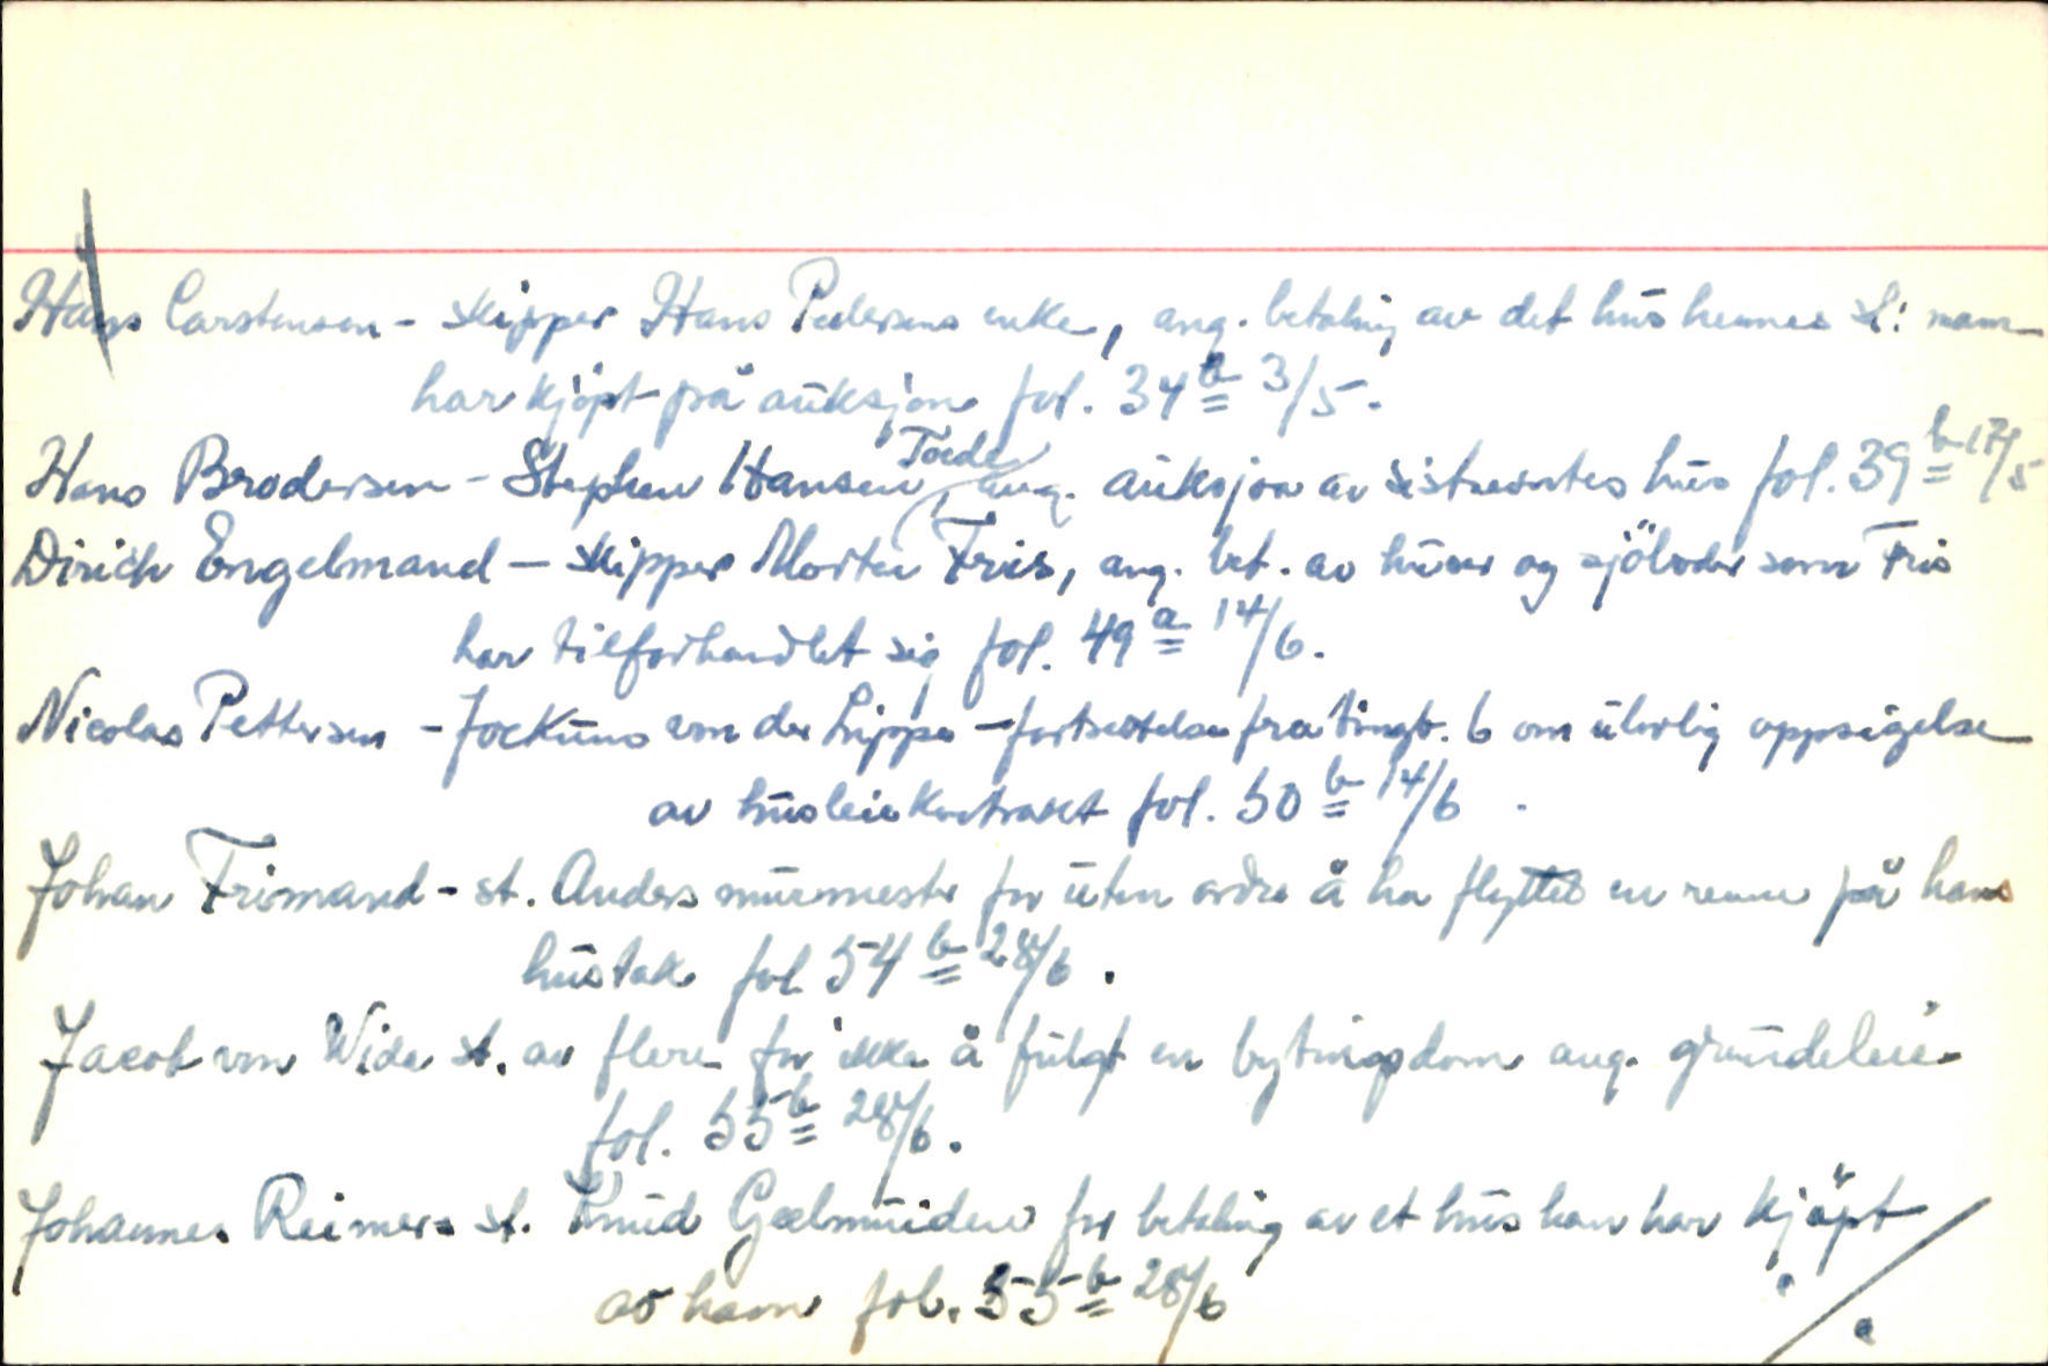 Hans Carstensen - skipper Hans Pedersens enke, ang. betaling av det hus hennes sl: mann
har kjöpt på auksjon fol. 34 b 3/5.
Hans Brodersen - Stephen Hansen Toede, ang. auksjon av sistnevntes hus fol. 39 b 17/5
Dirich Engelmand - skipper Morten Friis, ang. bet. av huser og sjöboder som Friis
har tilforhandlet sig fol. 49 a 14/6.
Nicolas Pettersen - Jockum von der Lippe - fortsettelse fra tingb. 6 om ulovlig oppsigelse
av husleiekontrakt fol. 50 b 14/6.
Johan Frimand - st. Anders murmester for uten ordre å ha flyttet en renne på hans
hustak fol 54 b 28/6.
Jacob von Wida st. av flere for ikke å fulgt en bytingsdom ang. grundeleie
fol. 55 b 28/6.
Johannes Reimers st. Knud Gelmuiden for betaling av et hus han har kjöpt
av ham fol. 55 b 28/6